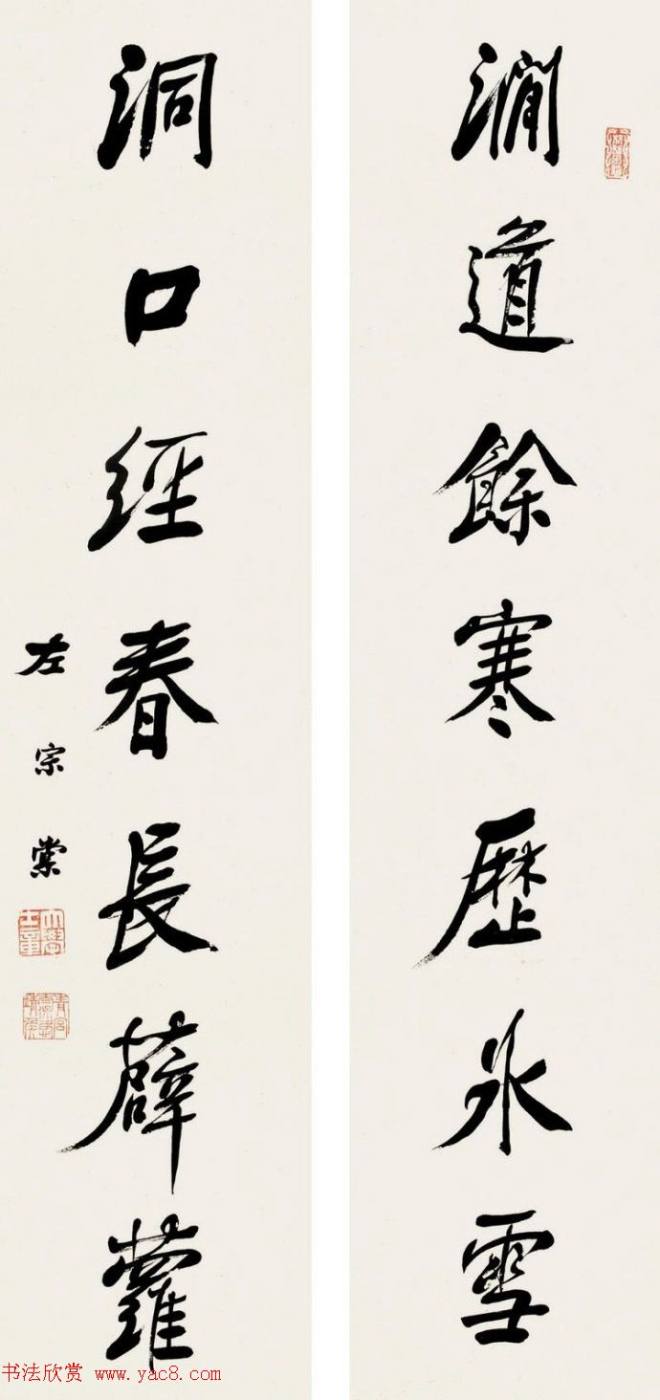 澗道餘寒歷冰雪
洞口經春長薜蘿
左宗棠
大學士章
书法欣赏 www.yac8.com